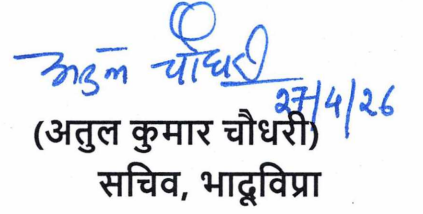 अतुल चौधरी
27/4/26
(अतुल कुमार चौधरी)
सचिव, भादूविप्रा